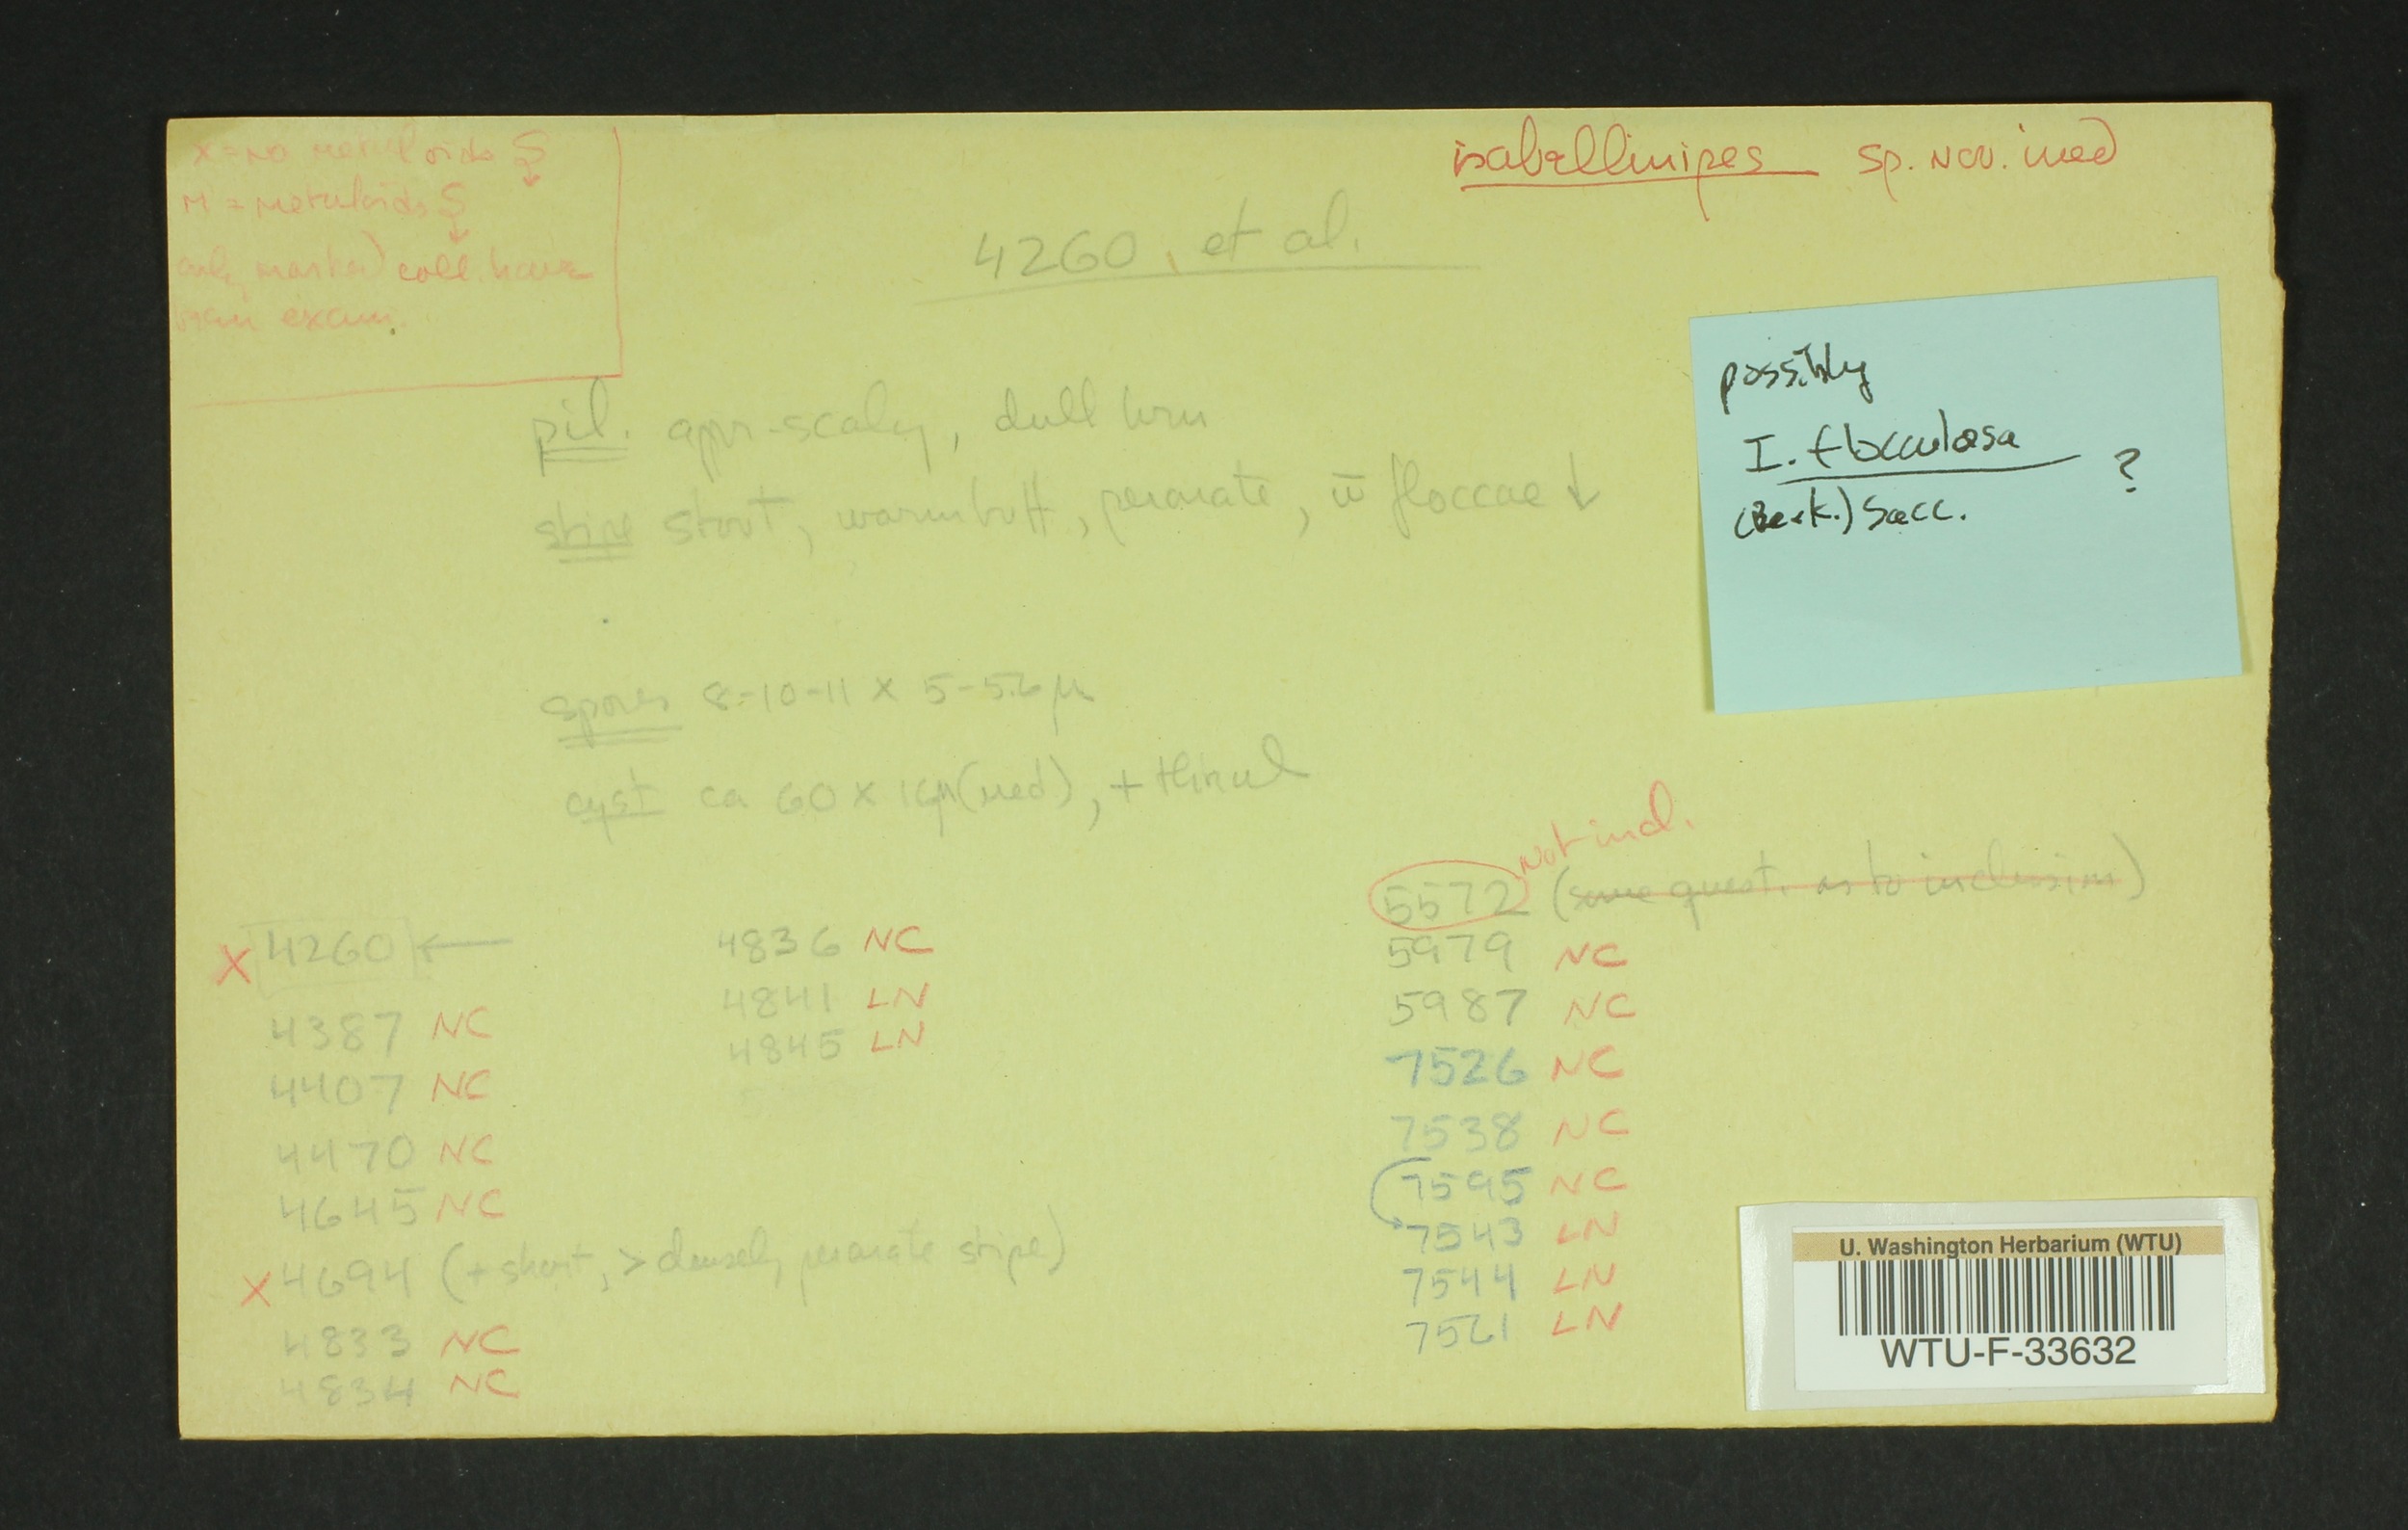 X = no metuloids S
M = metuloids S
only marked coll. have
been exam.
isabellinipes sp. nov. ined
4260, et al.
possibly
I. flocculosa
(Berk.) Sacc. ?
pil. appr-scaly, dull brn
stipe stout, warm buff, peronate, w̄ floccae ↓
spores 8-10-11 x 5-5.6 μ
cyst ca 60 x 16μ (med), +
X 4260 ←
4387 NC
4407 NC
4470 NC
4645 NC
X 4694 (+ short, > densely peronate stipe)
4833 NC
4834 NC
4836 NC
4841 LN
4845 LN
Not incl.
5572 (some quest. as to inclusion)
5979 NC
5987 NC
7526 NC
7538 NC
7595 NC
7543 LN
7544 LN
7561 LN
U. Washington Herbarium (WTU)
WTU-F-33632